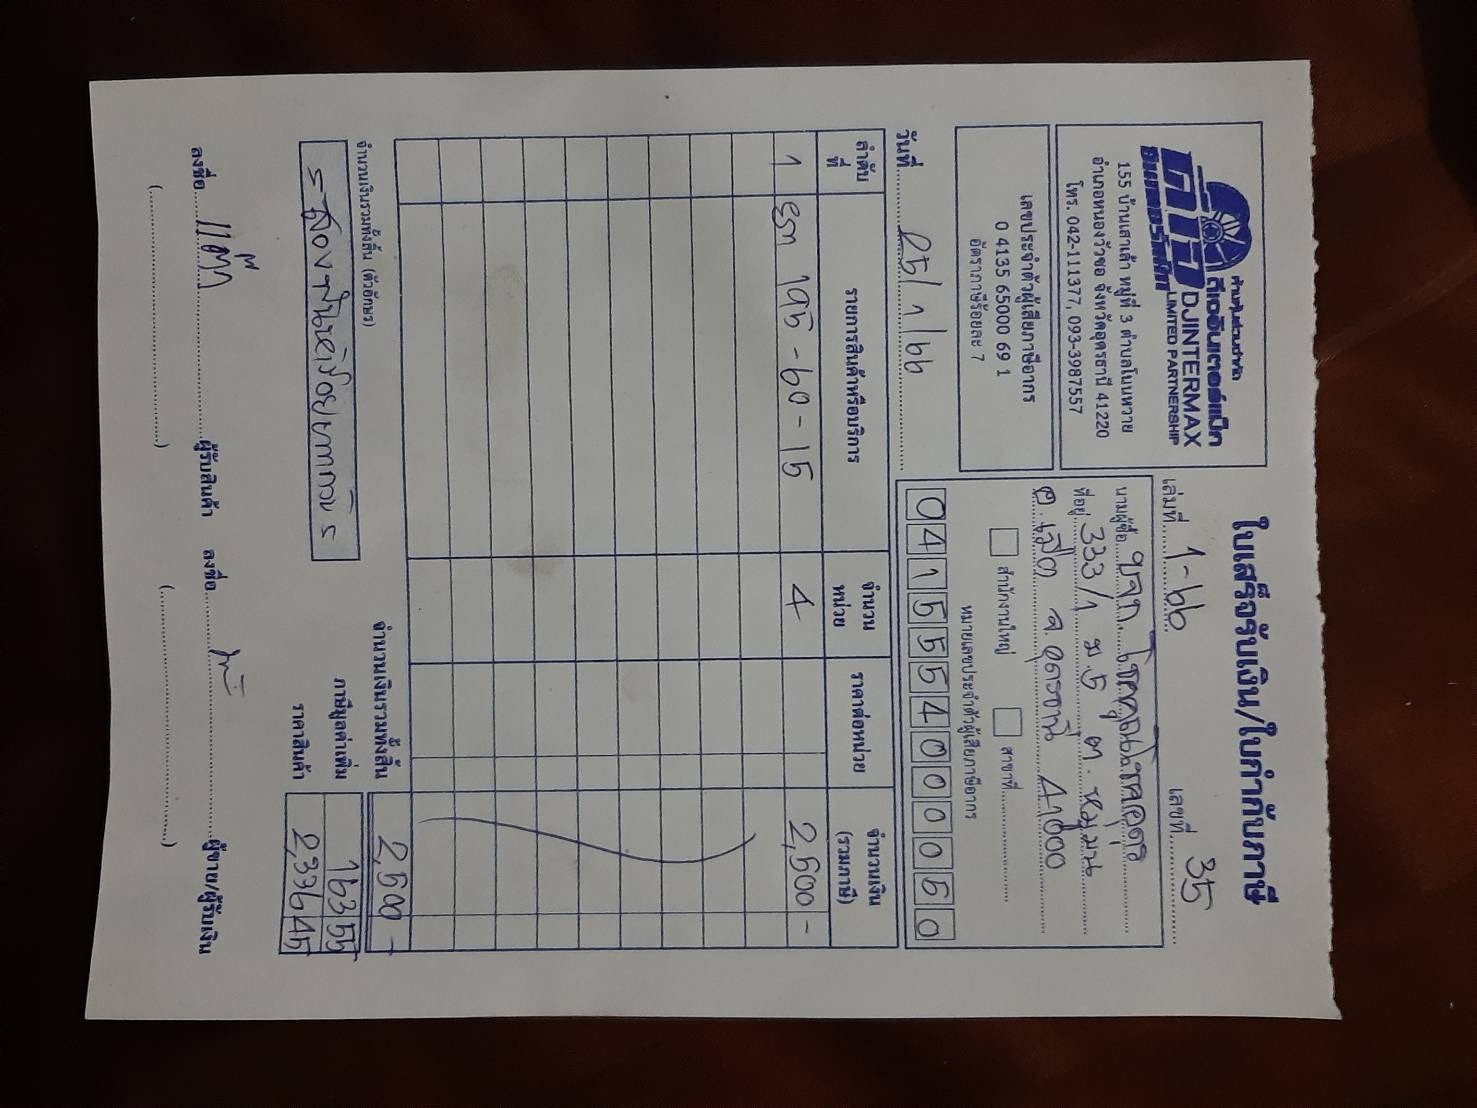 ใบเสร็จรับเงิน/ใบกำกับภาษี
ห้างหุ้นส่วนจำกัด
ดีเจอินเตอร์แม็ก
ดีเจ DJINTERMAX
อินเตอร์แม็ก LIMITED PARTNERSHIP
155 บ้านเสาเล้า หมู่ที่ 3 ตำบลโนนหวาย
อำเภอหนองวัวซอ จังหวัดอุดรธานี 41220
โทร. 042-111377, 093-3987557
เลขประจำตัวผู้เสียภาษีอากร
0 4135 65000 69 1
อัตราภาษีร้อยละ 7
วันที่ 25/1/66
เล่มที่ 1-66 เลขที่ 35
นามผู้ซื้อ บจก.
ที่อยู่ 333/1 ม.5 ต.หมูม่น
อ.เมือง จ.อุดรธานี 41000
สำนักงานใหญ่ สาขาที่
หมายเลขประจำตัวผู้เสียภาษีอากร
0415554000050
ลำดับที่ รายการสินค้าหรือบริการ จำนวนหน่วย ราคาต่อหน่วย จำนวนเงิน (รวมภาษี)
1 195-60-15 4 2,500 -
จำนวนเงินรวมทั้งสิ้น 2,500 -
จำนวนเงินรวมทั้งสิ้น (ตัวอักษร)
= สองพันห้าร้อยบาทถ้วน =
ภาษีมูลค่าเพิ่ม 163 55
ราคาสินค้า 2,336 45
ลงชื่อ ผู้รับสินค้า ลงชื่อ ผู้ขาย/ผู้รับเงิน
( ) ( )